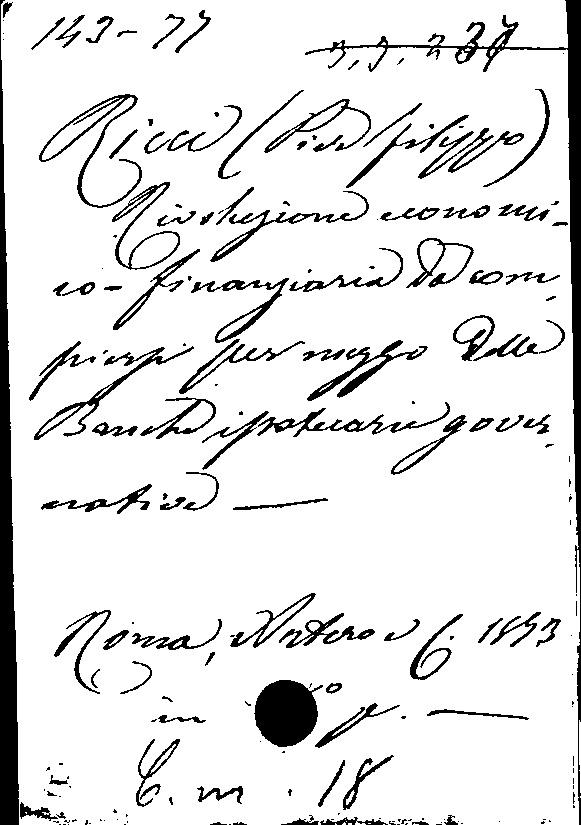 143-77
3.3.237
Ricci (Pier filippo)
Rivoluzione economi-
co-finanziaria da com-
piersi per mezzo delle
Banche ipotecarie gover-
native —
Roma, e C. 1873
in º p. —
C. m. 18